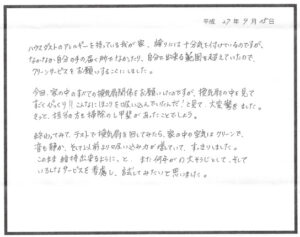 平成 27年 9月 15日
ハウスダストのアレルギーを持っている我が家、掃除には十分気を付けているのですが、
なかなか自分の手の届く所がなかったり、自分で出来る範囲を超えていたので、
クリーンサービスをお願いすることにしました。
今回、家の中のすべての換気扇関係をお願いしたのですが、換気扇の中を見て
すぐびっくり!こんなにほこりを吸い込んでいたんだ!と見て、大変驚きました。
きっと、担当の方も掃除のし甲斐があったことでしょう。
終わってみて、テストで換気扇を回してみたら、家の中の空気はクリーンで、
音も静か、そして以前よりの吸い込み力が感じていて、すっきりしました。
このまま維持出来るように。と、また何年かの大そうじとして、そして
いろんなサービスを考慮し、試してみたいと思いました。